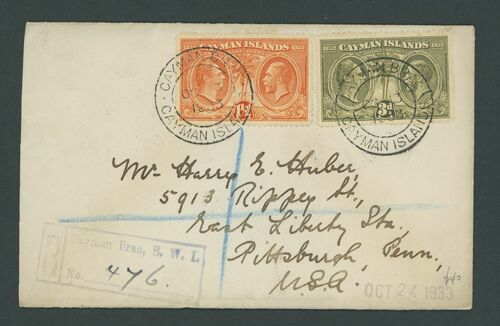 1832 CAYMAN ISLANDS 1932
1½d
1832 CAYMAN ISLANDS 1932
3d
CAYMAN BRAC
CAYMAN ISLANDS
CAYMAN ISLAND
Mr Harry E. Huber,
5913 Rippey St.,
East Liberty Sta,
Pittsburgh, Penn,
U.S.A.
R
Cayman Brac, B. W. I.
No. 476.
OCT 24 1933